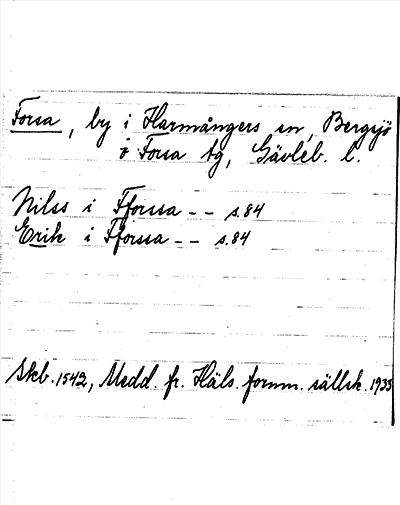 Forsa, by i Harmångers sn, Bergsjö
o Forsa tg, Gävleb. l.
Nilss i Fforssa - - s.84
Erik i Fforssa - - s.84
Skb. 1542, Medd. fr. Häls. fornm. sällsk. 1935